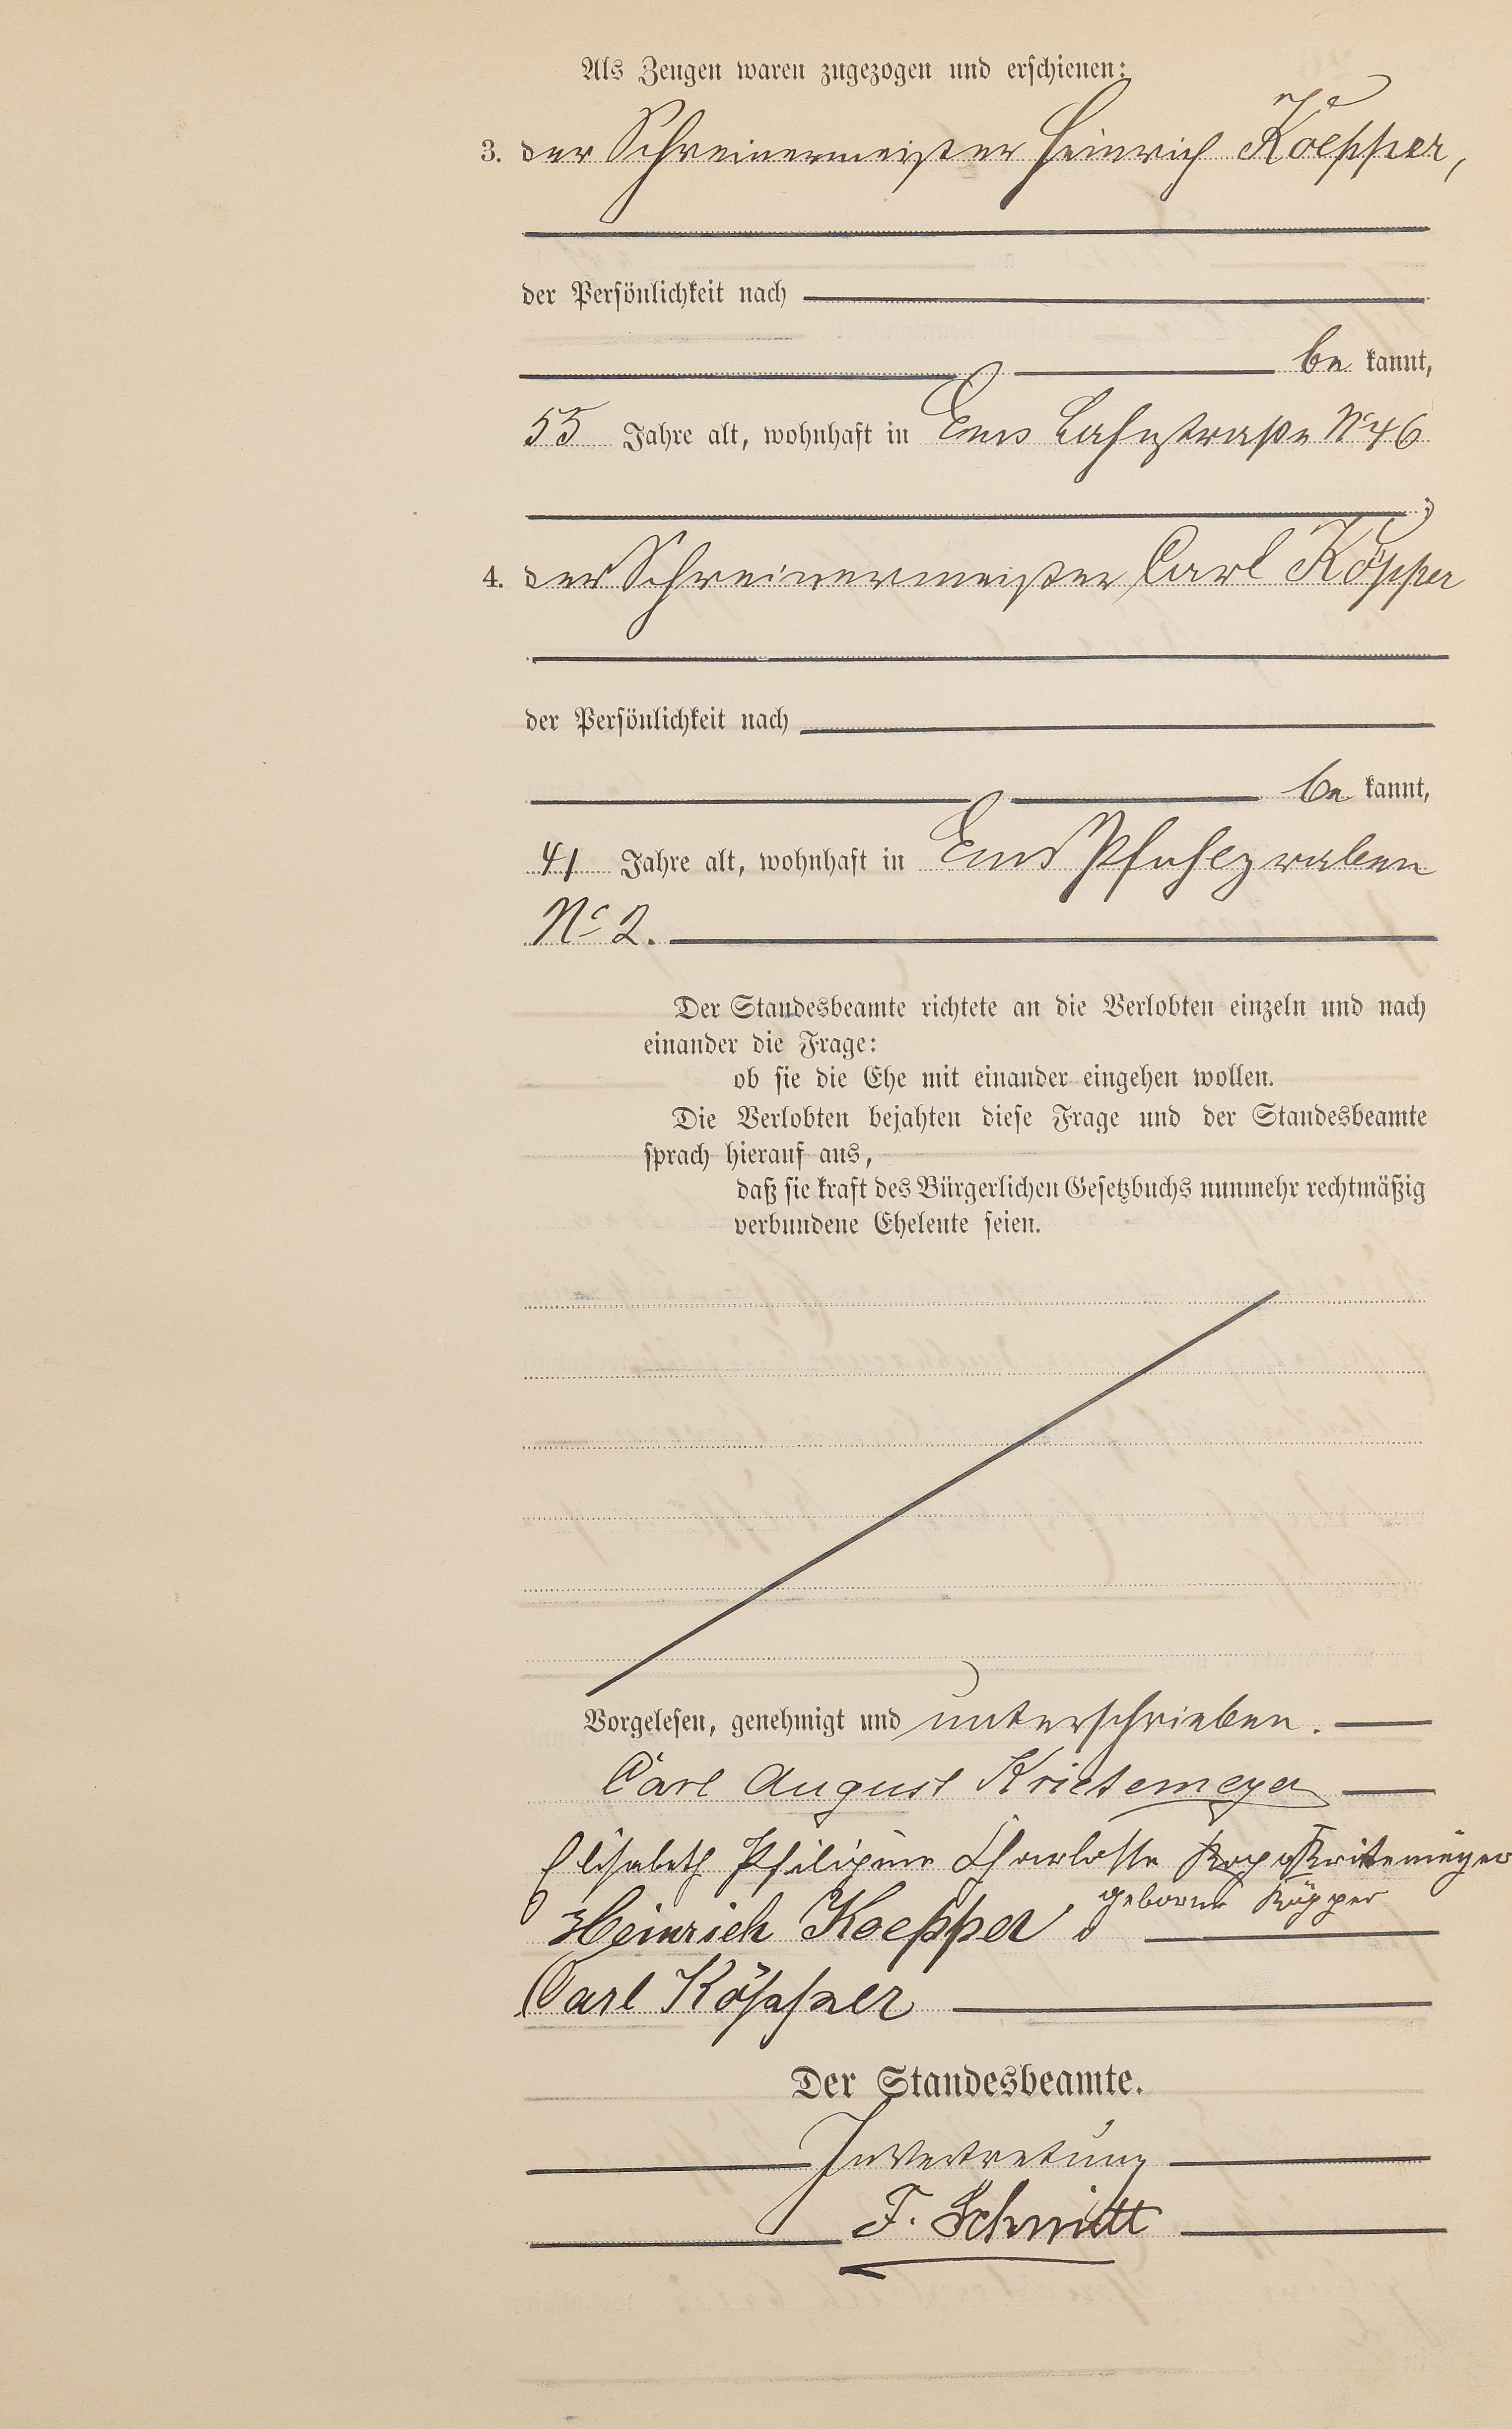 Als Zeugen waren zugezogen und erschienen:
3. der Schreinermeister Heinrich Koepper,
der Persönlichkeit nach
be kannt,
55 Jahre alt, wohnhaft in Ems Lahnstraße No 46
;
4. der Schreinermeister Carl Köpper
der Persönlichkeit nach
be kannt,
41 Jahre alt, wohnhaft in Ems Pfahlgraben
No 2.
Der Standesbeamte richtete an die Verlobten einzeln und nach
einander die Frage:
ob sie die Ehe mit einander eingehen wollen.
Die Verlobten bejahten diese Frage und der Standesbeamte
sprach hierauf aus,
daß sie kraft des Bürgerlichen Gesetzbuchs nunmehr rechtmäßig
verbundene Eheleute seien.
Vorgelesen, genehmigt und unterschrieben.
Carl August Krietemeyer
Elisabeth Philipine Charlotte Kritemeyer
geborne Köpper
Heinrich Koepper
Carl Köpper
Der Standesbeamte.
In Vertretung
F. Schmitt